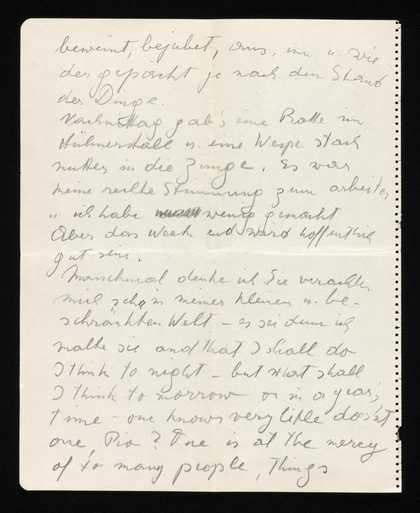 beweint, bejubelt, uns, im u. wie
des gepächt je nach dem Stand
der Dinge.
Nachmittag gab's eine Ratte im
Hühnerstall u. eine Wespe stach
mutter in die Zunge. Es war
keine rechte Stimmung zum arbeiten
u. ich habe wenig gemacht
Aber das Week end ward hoffentlich
gut sein.
Manchmal denke ich Sie verachten
mich schon meiner kleinen u. be-
schränkten Welt – es sei denn ich
malte sie and that I shall do
I think to night – but what shall
I think to morrow or in a year's
time – one knows very little doesn't
one, ? One is at the mercy
of so many people, things